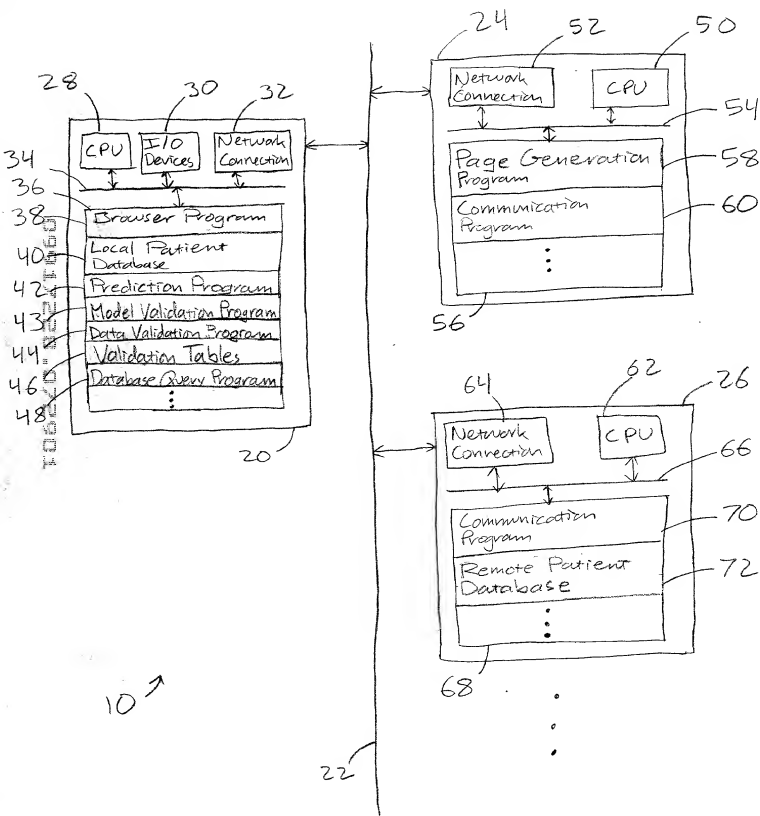 24
52
50
Network
Connection
CPU
54
Page Generation
Program
58
Communication
Program
60
56
28
30
32
CPU
I/O
Devices
Network
Connection
34
36
38
Browser Program
40
Local Patient
Database
42
Prediction Program
43
Model Validation Program
44
Data Validation Program
46
Validation Tables
48
Database Query Program
20
64
62
26
Network
Connection
CPU
66
Communication
Program
70
Remote Patient
Database
72
68
10
22